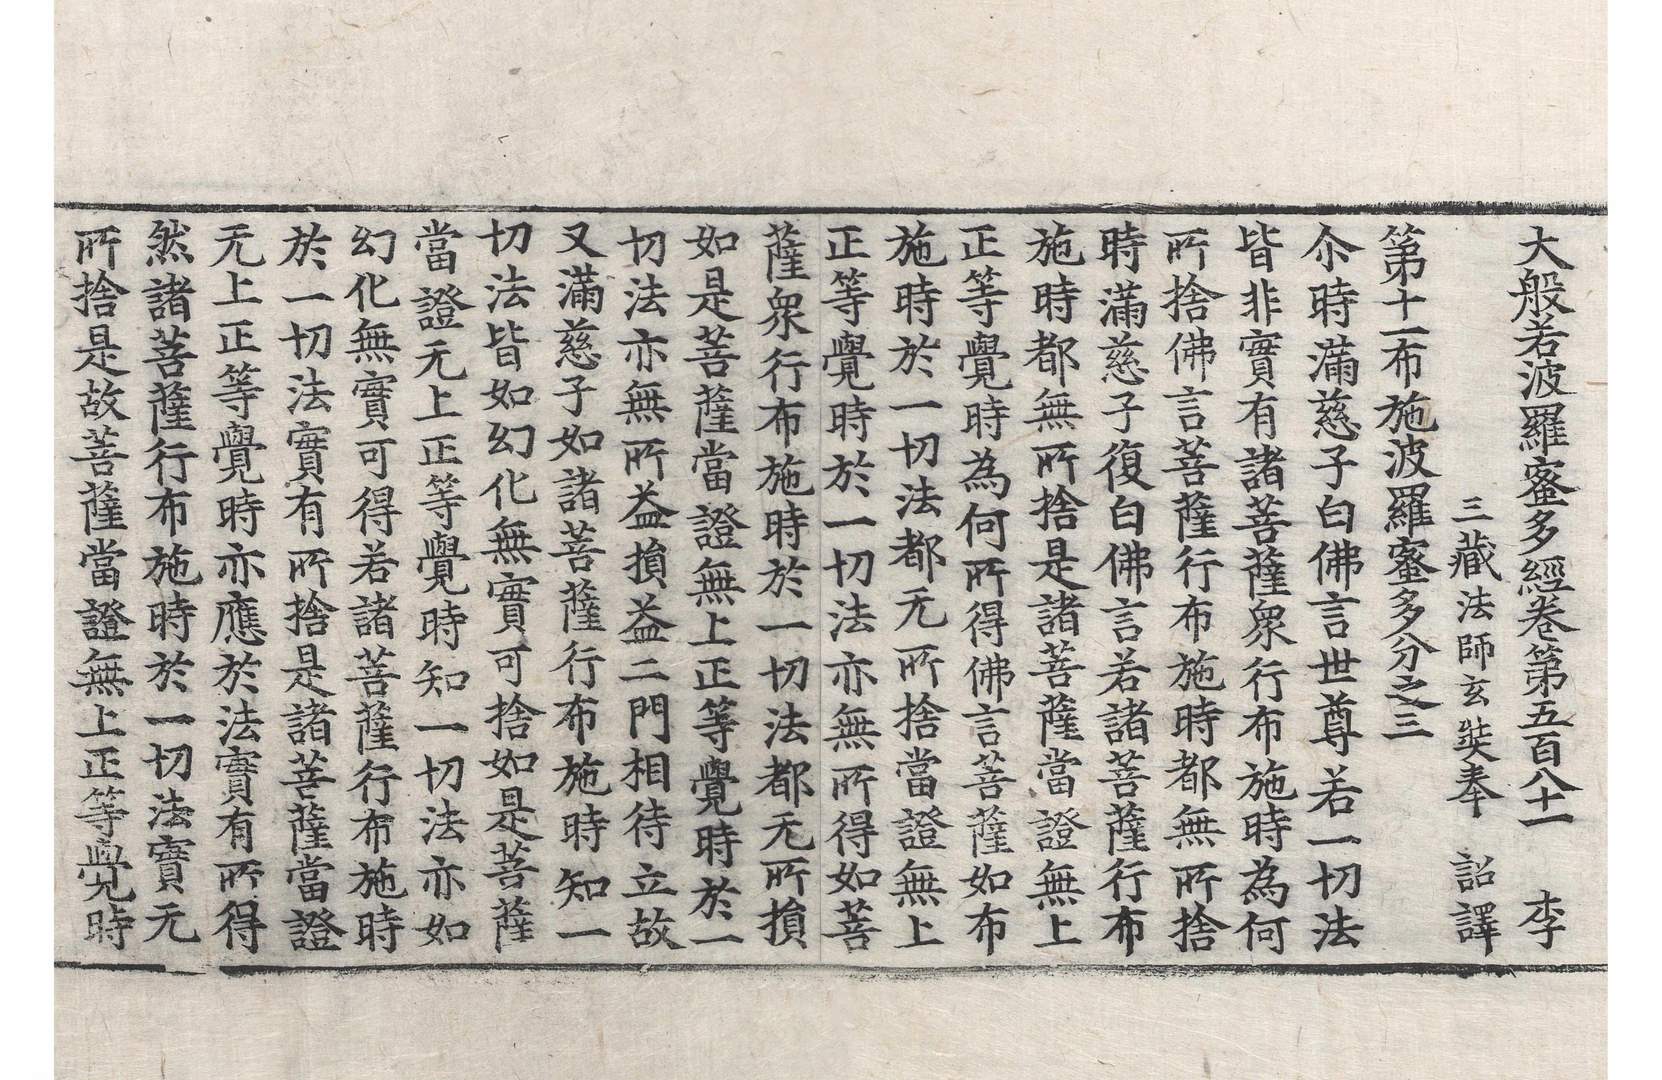 大般若波羅蜜多經卷第五百八十一　李
三藏法師玄奘奉　詔譯
第十一布施波羅蜜多分之三
尒時滿慈子白佛言世尊若一切法
皆非實有諸菩薩衆行布施時為何
所捨佛言菩薩行布施時都無所捨
時滿慈子復白佛言若諸菩薩行布
施時都無所捨是諸菩薩當證無上
正等覺時為何所得佛言菩薩如布
施時於一切法都无所捨當證無上
正等覺時於一切法亦無所得如菩
薩衆行布施時於一切法都无所損
如是菩薩當證無上正等覺時於一
切法亦無所益損益二門相待立故
又滿慈子如諸菩薩行布施時知一
切法皆如幻化無實可捨如是菩薩
當證无上正等覺時知一切法亦如
幻化無實可得若諸菩薩行布施時
於一切法實有所捨是諸菩薩當證
无上正等覺時亦應於法實有所得
然諸菩薩行布施時於一切法實无
所捨是故菩薩當證無上正等覺時